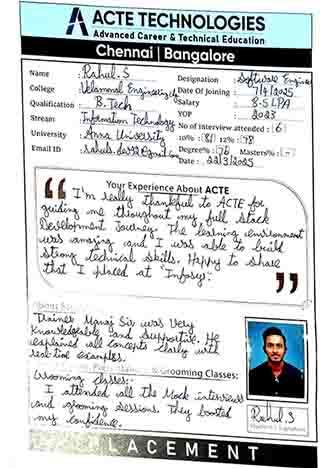 ACTE TECHNOLOGIES
Advanced Career & Technical Education
Chennai | Bangalore
Name : Rahul.S
Designation : Software Engineer
College : Velammal Engineering
Date Of Joining : 7/4/2025
Qualification : B.Tech
Salary : 8.5 LPA
Stream : Information Technology
YOP : 2023
No of interview attended : 6
University : Anna University
10% : 81 12% : 78
Email ID :
Degree% : 76 Masters% : -
Date : 22/3/2025
Your Experience About ACTE
“ I'm really thankful to ACTE for
guiding me throughout my full stack
Development journey. The learning environment
was amazing and I was able to build
strong technical skills. Happy to share
that I placed at "Infosys. ”
Trainer Manoj Sir was very
knowledgeable and supportive. He
explained all concepts clearly with
real-time examples.
Grooming Classes:
Grooming classes:-
I attended all the Mock interviews
and grooming sessions. They boosted
my confidence.
Rahul.S
PLACEMENT